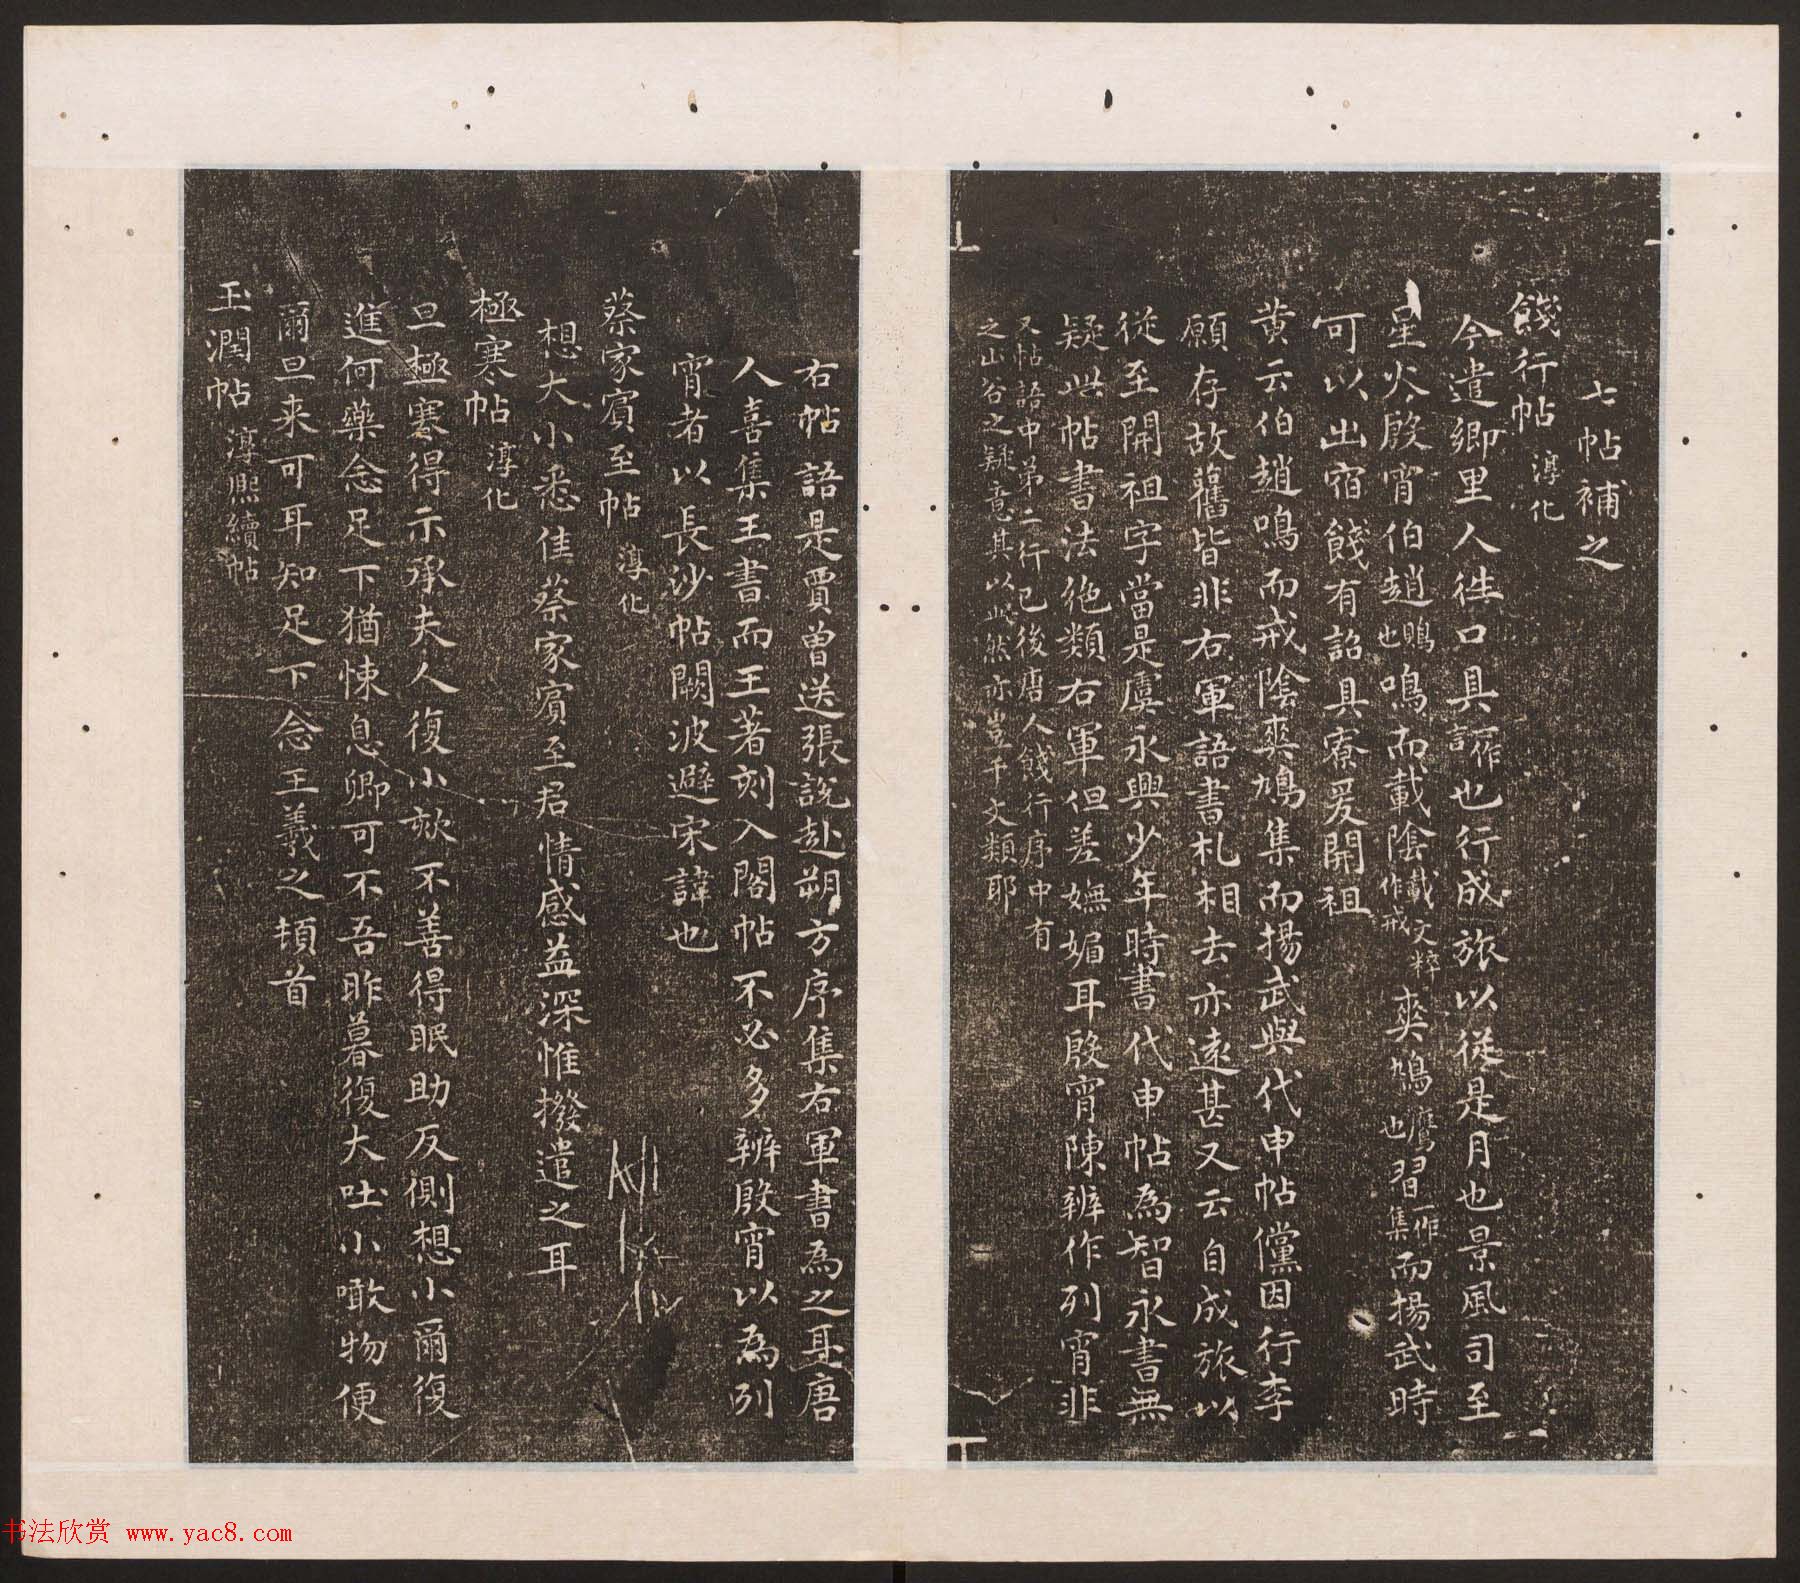 七帖補之
餞行帖 淳化
今遣卿里人往口具一作言也行成旅以從是月也景風司至
星火殷宵伯趙鵙也鳴而載陰載文粹作戒爽鳩鷹也習一作集而揚武時
可以出宿餞有詔具寮爰開祖
黄云伯趙鳴而戒陰爽鳩集而揚武與代申帖儻因行李
願存故舊皆非右軍語書札相去亦遠甚又云自成旅以
從至開祖字當是虞永興少年時書代申帖為智永書無
疑此帖書法絶類右軍但差嫵媚耳殷宵陳辨作列宵非
又帖語中第二行已後唐人餞行序中有
之山谷之疑意其以此然亦豈千文類耶
右帖語是賈曾送張說赴朔方序集右軍書為之耳唐
人喜集王書而王著刻入閣帖不必多辨殷宵以為列
宵者以長沙帖闕波避宋諱也
蔡家賓至帖 淳化
想大小悉佳蔡家賓至君情感益深惟撥遣之耳
極寒帖 淳化
旦極寒得示承夫人復小欬不善得眠助反側想小爾復
進何藥念足下猶悚息卿可不吾昨暮復大吐小噉物便
爾旦来可耳知足下念王羲之頓首
玉潤帖 淳熙續帖
书法欣赏 www.yac8.com